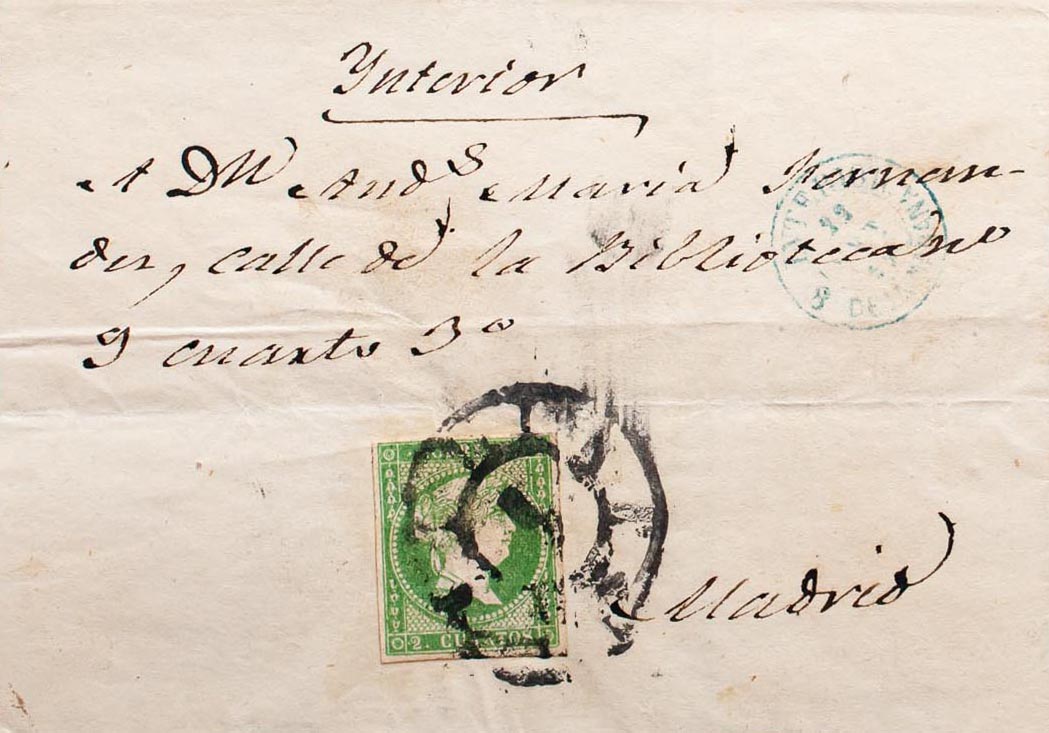 Ynterior
A Dn And.s Maria Hernan-
dez, calle de la Biblioteca no
9 cuarto 3o
Madrid
2. CUARTOS
8 DE